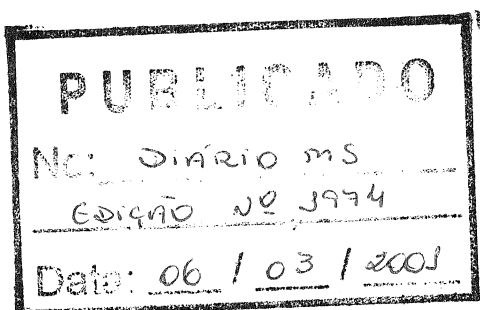 PUBLICADO
No: DIÁRIO MS
EDIÇÃO Nº 1974
Data: 06 / 03 / 2001